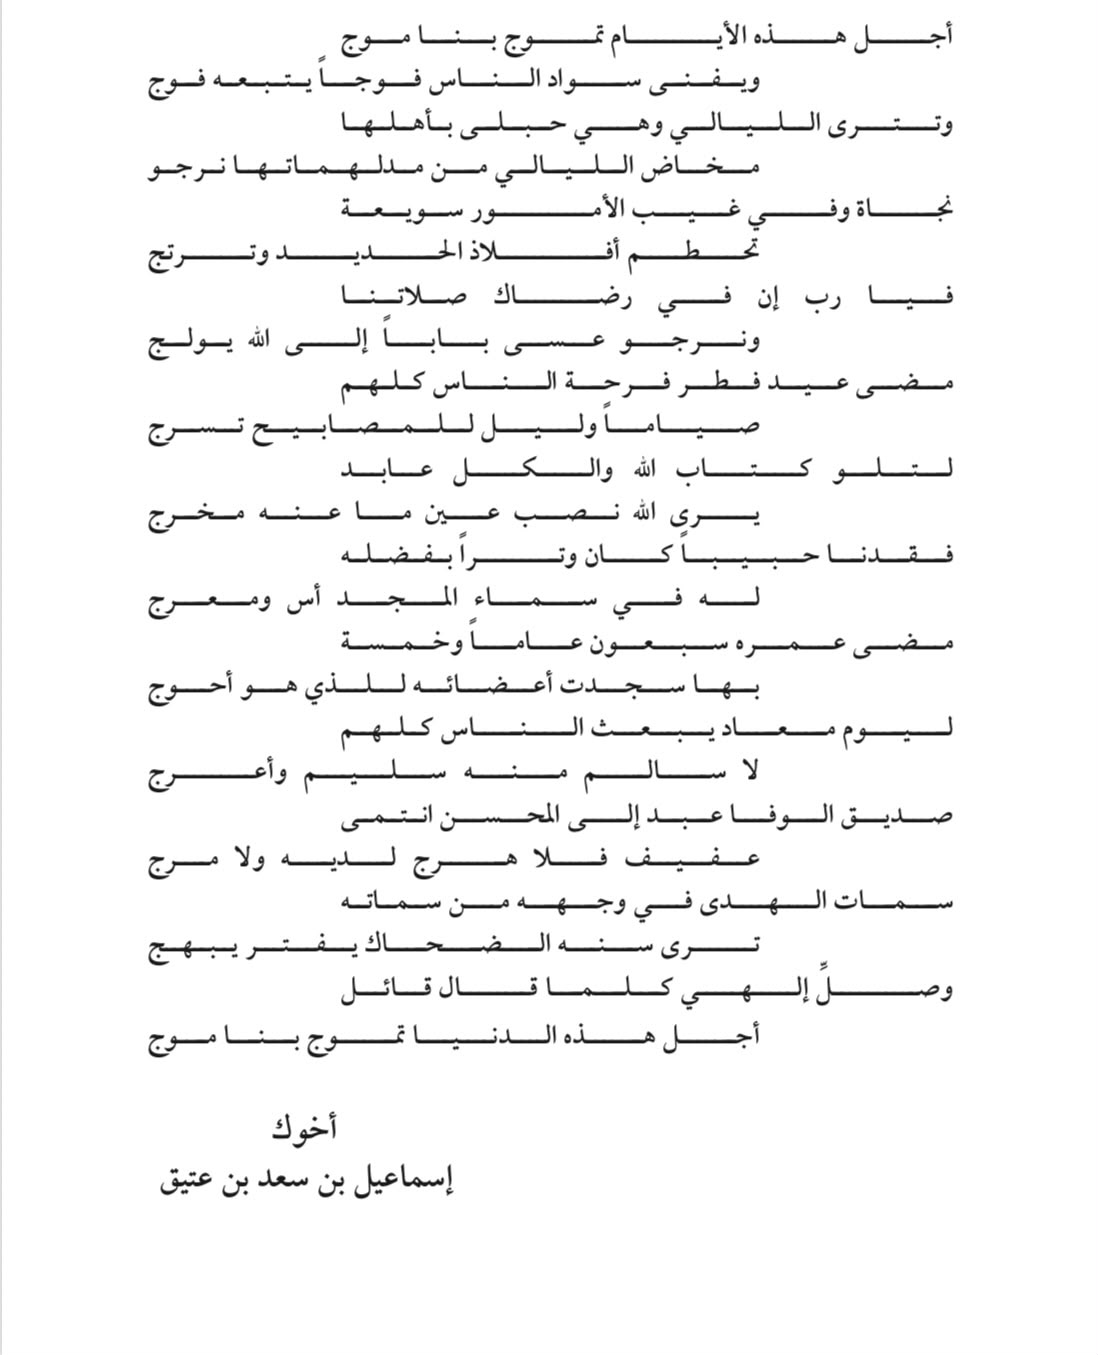 أجل هذه الأيام تموج بنا موج
ويفنى سواد الناس فوجاً يتبعه فوج
وتترى الليالي وهي حبلى بأهلها
مخاض الليالي من مدلهماتها نرجو
نجاة وفي غيب الأمور سويعة
تحطم أفلاذ الحديد وترتج
فيا رب إن في رضاك صلاتنا
ونرجو عسى باباً إلى الله يولج
مضى عيد فطر فرحة الناس كلهم
صياماً وليل للمصابيح تسرج
لتلو كتاب الله والكل عابد
يرى الله نصب عين ما عنه مخرج
فقدنا حبيباً كان وتراً بفضله
له في سماء المجد أس ومعرج
مضى عمره سبعون عاماً وخمسة
بها سجدت أعضائه للذي هو أحوج
ليوم معاد يبعث الناس كلهم
لا سالم منه سليم وأعرج
صديق الوفا عبد إلى المحسن انتمى
عفيف فلا هرج لديه ولا مرج
سمات الهدى في وجهه من سماته
ترى سنه الضحاك يفتر يبهج
وصلِّ إلهي كلما قال قائل
أجل هذه الدنيا تموج بنا موج
أخوك
إسماعيل بن سعد بن عتيق